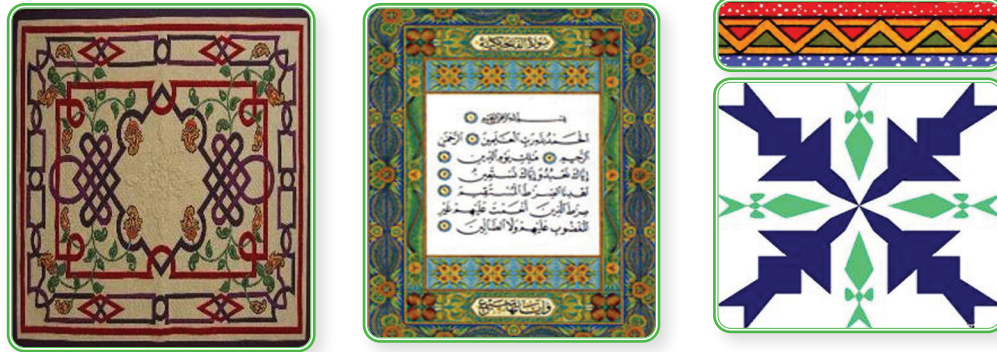 سورة الفاتحة
بسم الله الرحمن الرحيم ١
الحمد لله رب العالمين ٢ الرحمن
الرحيم ٣ مالك يوم الدين ٤
إياك نعبد وإياك نستعين ٥
اهدنا الصراط المستقيم ٦
صراط الذين أنعمت عليهم غير
المغضوب عليهم ولا الضالين ٧
وآياتها سبع